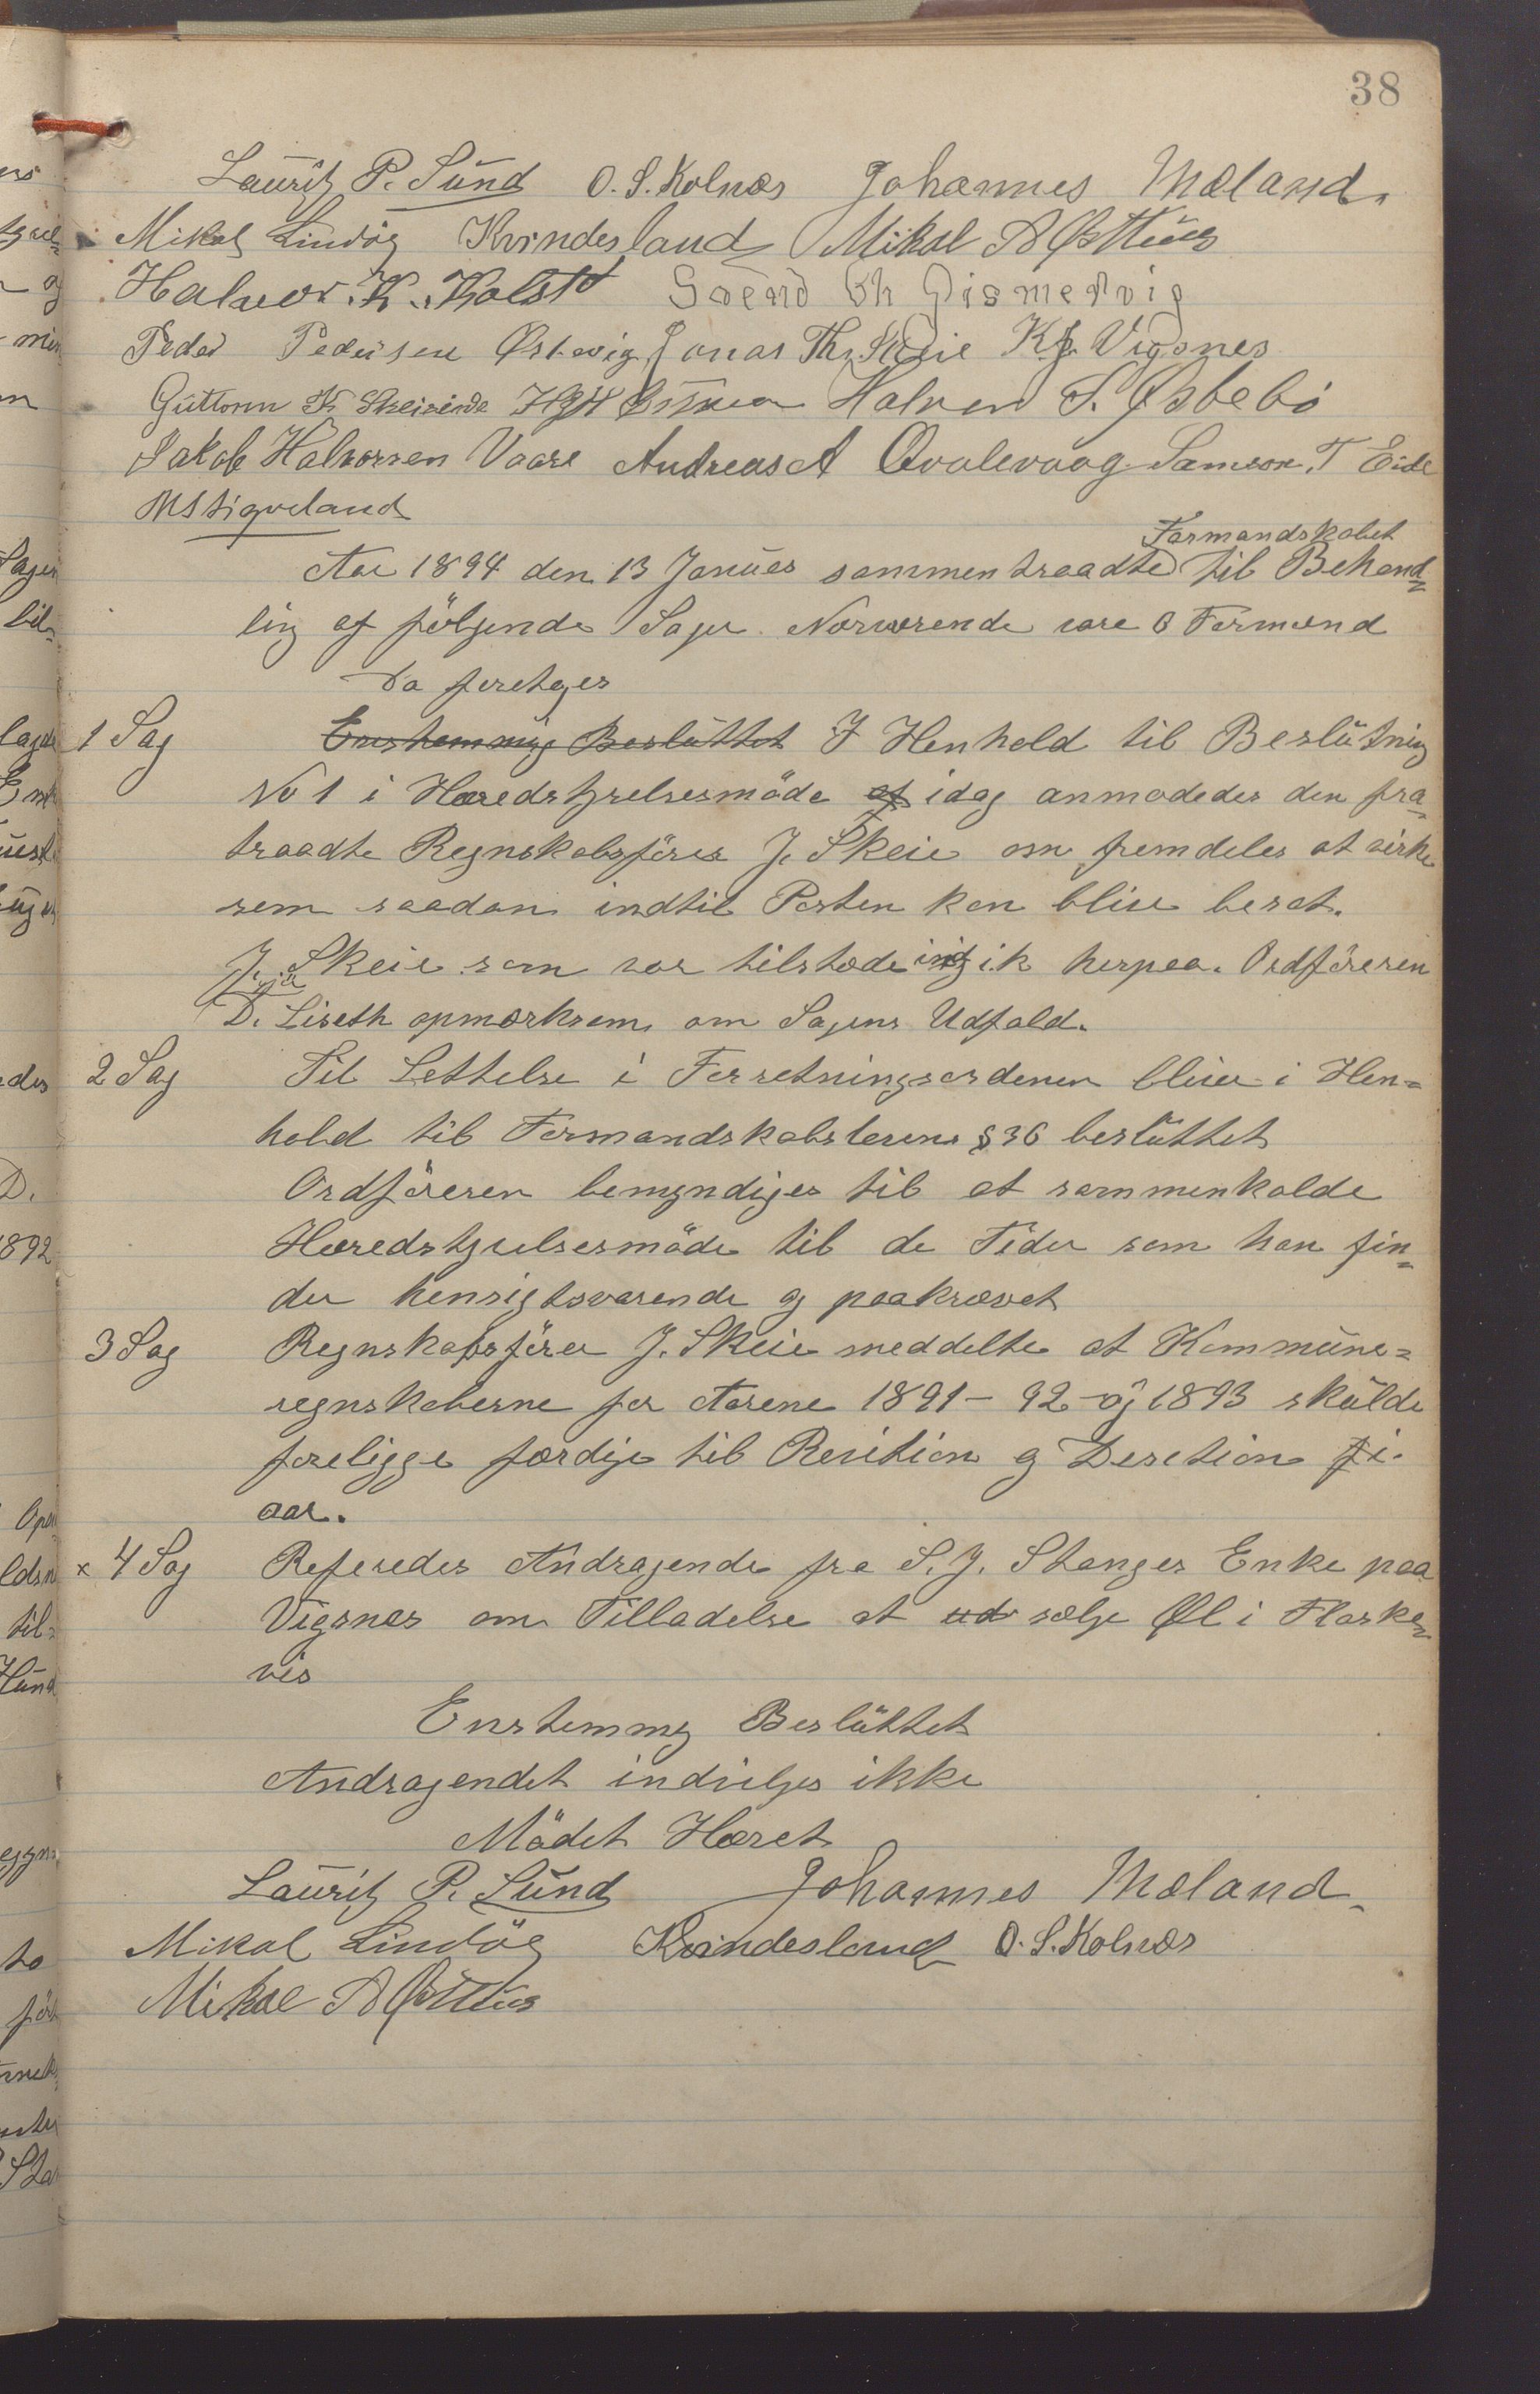 38
Lauritz P. Sund O. S. Kolnæs Johannes Mæland.
Mikal Lindög Kvindesland Mikal A Østhus
Halvor. K. Kolstø Svend Ch Gismervig
Peder Pedersen Østevig Jonas Th. Skeie K. J. Vigsnes
Guttorm K. Skeisvold Halvor S. Østebö
Jakob Halvorsen Vaare Andreas A Qvalevaag Samson. T Eide
M Stigveland
Formandskabet
Aar 1894 den 13 Januar sammentraadte til Behand-
ling af följende Sager. Nærværende vare 6 Formænd
Da foretoges
1 Sag Enstemmig Besluttet I Henhold til Beslutning
No 1 i Herredstyrelsesmöde af idag anmodedes den fra-
traadte Regnskabsförer J. Skeie om fremdeles at virke
som saadan indtil Posten kan blive besat.
J. Skeie som var tilstæde indgik herpaa. Ordföreren
D. Liseth opmærksom om Sagens Udfald.
2 Sag Til Lettelse i Forretningsordenen blive i Hen-
hold til Formandskabslovens § 36 besluttet
Ordföreren bemyndiges til at sammenkalde
Herredstyrelsesmöde til de Tider som han fin-
der hensigtsvarende og paakrævet
3 Sag Regnskabsförer J. Skeie meddelte at Kommune-
regnskaberne for Aarene 1891 - 92 - og 1893 skulde
foreligge færdige til Revition og Desetion i
aar.
x 4 Sag Referedes Andragende fra S. J. Stanges Enke paa
Vigsnes om Tilladelse at ud sælge Øl i Flaske-
vis
Enstemmig Besluttet
Andragendet indvilges ikke
Mödet Hævet
Lauritz P. Sund Johannes Mæland.
Mikal Lindög Kvindesland O. S. Kolnæs
Mikal A Østhus